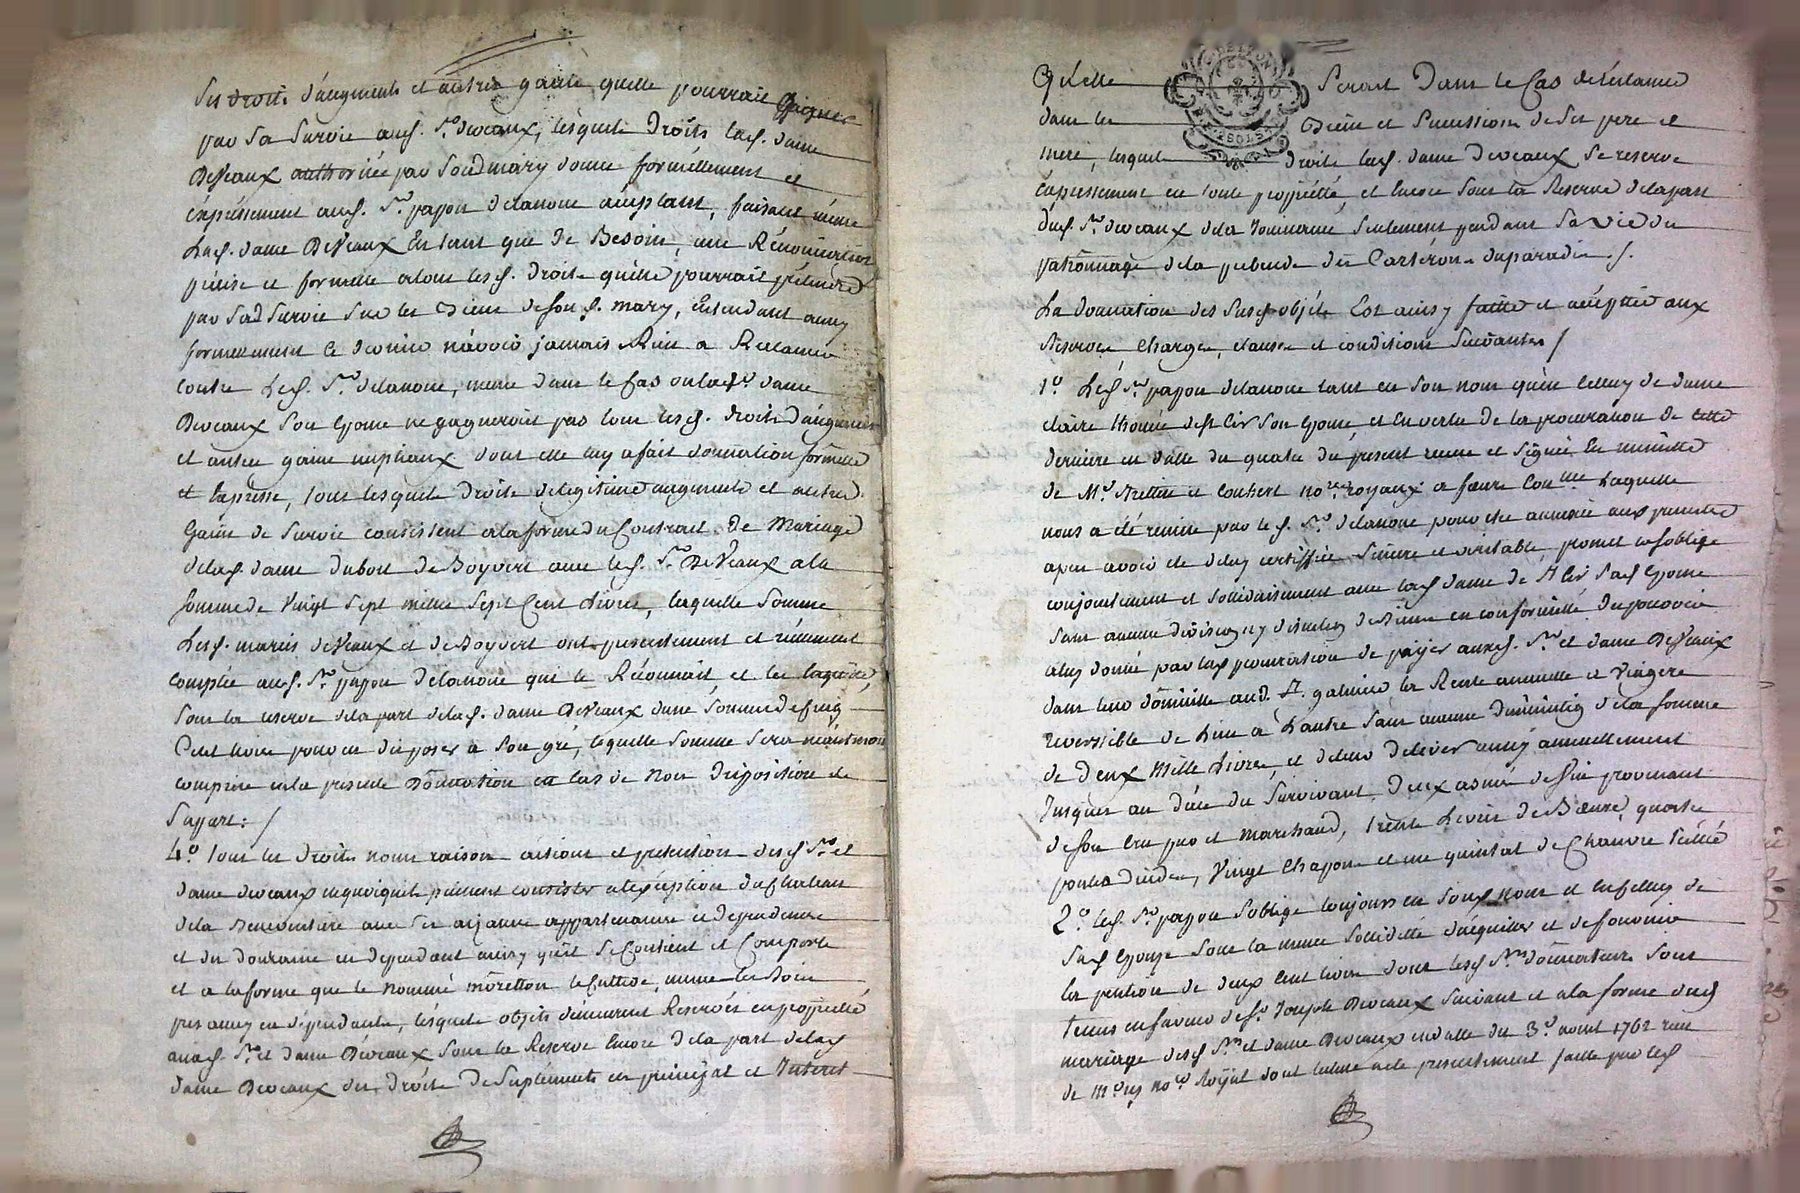 ses droits d'augments et autres gains quelle pourrait gagner
par sa survie aud. Sr. deveaux, lesquels droits lad. dame
DeVeaux authorisée par sond mary donne formellement et
expressement aud. Sr. papon delanoue acceptant, faisant même
Lad. dame DeVeaux En tant que de Besoin, une Renonciation
précise et formelle a tous lesd. droits quelle pourrait prétendre
par sad survie sur les Biens de son d. mary, Entendant aussy
formellement ce dernier n'avoir jamais Rien a Reclamer
contre Led. Sr. delanoue, même dans le cas ou lad. dame
Deveaux son Epouse ne gagnerait pas tous lesd. droits d'augments
et autres gains nuptiaux dont elle luy a fait donnation formelle
et Expresse, tous lesquels droits de legitime augments et autres
Gains de survie consistent a la forme du Contrat de Mariage
delad. dame dubost de Boyvert avec led. Sr. DeVeaux a la
somme de Vingt sept mille sept Cent Livres, laquelle somme
Lesd. mariés deVeaux et de Boyvert ont presentement et réellement
comptée aud. Sr. papon delanoue qui le Reconnait et les
sous la reserve dela part delad. dame DeVeaux d'une somme de cinq
Cent livres pour en disposer a son gré, laquelle somme sera néantmoins
comprise en la presente Donnation en cas de Non disposition de
sa part: /
4.o Tous les droits noms raisons actions et pretentions desd Sr. et
dame deveaux en quoi quils puissent consister a l'exception du Chateau
dela avec ses aizances appartenances et dependances
et du domaine en dependant ainsy qu'il se Contient et Comporte
et a la forme que le nommé moretton le Cultive, meme les Bois
pres aussy en dependants, lesquels objets demeurent Reservés en proprieté
auxd. Sr. et dame Deveaux sous la Reserve Encore dela part delad
dame Deveaux des droits de suplements en principal et Interet
Quelle serait Dans le Cas de reclamer
dans les Biens et successions de ses pere et
mere, lesquels droits lad. dame Deveaux se reserve
expressement en toute proprieté, et Encore sous la Reserve dela part
dud. Sr. deveaux dela seulement pendant sa Vie du
patronnage dela prebende des du paradis ./.
La donnation des susd objets Est ainsy faitte et acceptée aux
reserves charges, clauses et conditions suivantes /
1.o Led Sr. papon delanoue tant en son nom qu'en celluy de dame
claire de St Cir son Epouse et En vertu de la procuration de cette
derniere en datte du quatre du present reçue et signée En minutte
de Me. et Coubert nores. royaux a Laquelle
nous a été remise par led. Sr. delanoue pour etre annexée aux presentes
apres avoir ete deluy certiffiée sincere et veritable, promet et s'oblige
conjointement et solidairement avec lad dame de St Cir sad Epouse
sans aucune division ny discution de Biens en conformitté du pouvoir
a luy donné par lad procuration de payer auxd. Sr. et dame DeVeaux
dans leur domicille aud. St. galmier la Rente annuelle et Viagere
reversible de L'un a L'autre sans aucune diminution dela somme
de Deux Mille Livres, et deleur delivrer aussy annuellement
Jusques au déces du survivant, Deux asnées de Vin provenant
de son cru pur et marchand, trente Livres de Beurre, quatre
poules d'indes, Vingt Chapons et un quintal de Chanvre
2.o led. Sr. papon s'oblige toujours en sond Nom et En celluy de
sad Epouse sous la meme solidité d'acquitter et de fournir
la pention de deux cent livres dont lesd Srs. donnateurs sont
tenus en faveur de Sr. Joseph Deveaux suivant et a la forme dud
mariage desd Sr. et dame Deveaux en datte du 3.e aout 1762 reçu
de me. nore. Royal dont lecture a ete presentement faitte par led